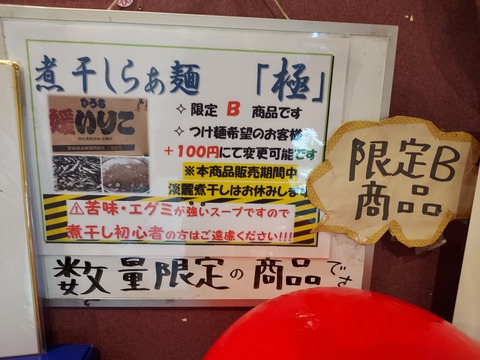 煮干しらぁ麺 「極」
ひうち
媛いりこ
✧ 限定 B 商品です
✧ つけ麺希望のお客様
+100円にて変更可能です
※本商品販売期間中
淡麗煮干しはお休みします
⚠苦味・エグミが強いスープですので
煮干し初心者の方はご遠慮ください!!!
数量限定の商品です
限定B
商品